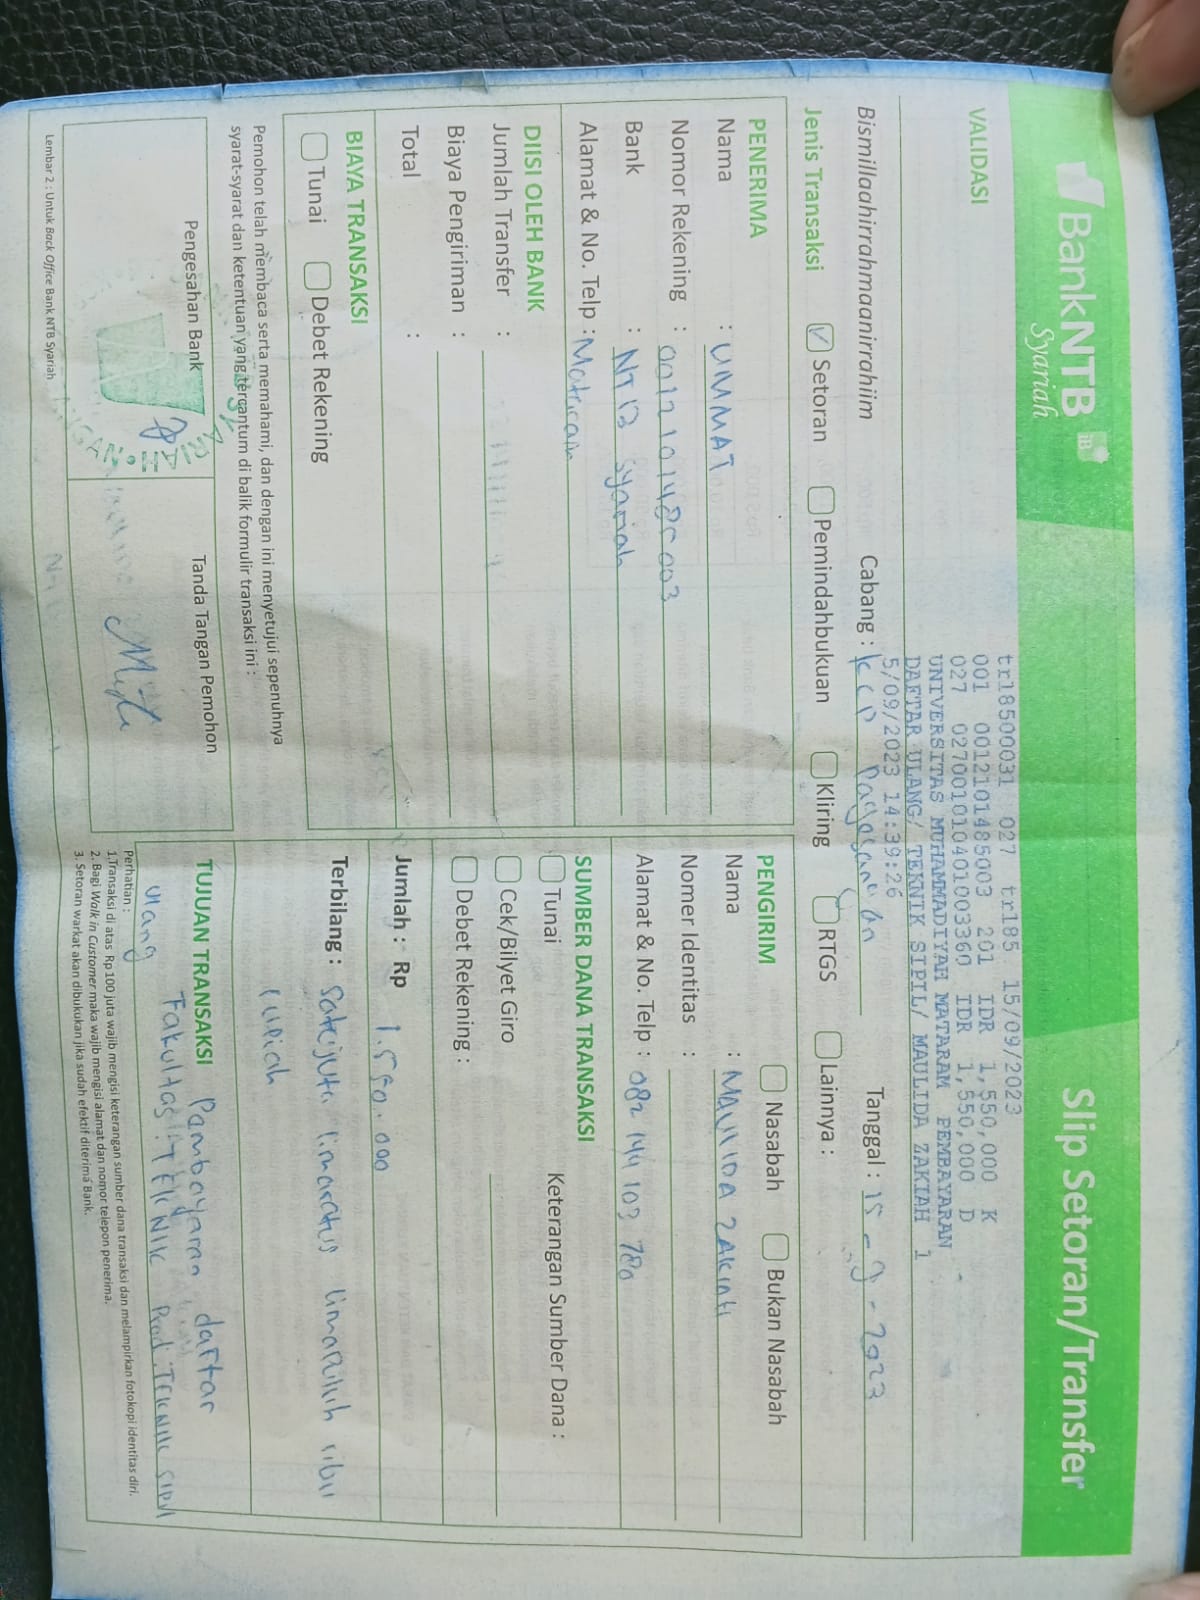 BankNTB
Syariah
iB
Slip Setoran/Transfer
VALIDASI
tr18500031 027 tr185 15/09/2023
001 0012101485003 201 IDR 1,550,000 K
027 027001010401003360 IDR 1,550,000 D
UNIVERSITAS MUHAMMADIYAH MATARAM PEMBAYARAN
DAFTAR ULANG/ TEKNIK SIPIL/ MAULIDA ZAKIAH 1
5/09/2023 14:39:26
Bismillaahirrahmaanirrahiim
Cabang : KCP Pagesangan
Tanggal : 15 - 9 - 2023
Jenis Transaksi
Setoran
Pemindahbukuan
Kliring
RTGS
Lainnya :
PENERIMA
Nama : UMMAT
Nomor Rekening : 0012101485003
Bank : NTB Syariah
Alamat & No. Telp : Mataram
PENGIRIM
Nasabah
Bukan Nasabah
Nama : MAULIDA ZAKIAH
Nomer Identitas :
Alamat & No. Telp : 082 144 103 780
DIISI OLEH BANK
Jumlah Transfer :
Biaya Pengiriman :
Total :
SUMBER DANA TRANSAKSI
Tunai
Keterangan Sumber Dana :
Cek/Bilyet Giro
Debet Rekening :
BIAYA TRANSAKSI
Tunai
Debet Rekening
Jumlah : Rp 1.550.000
Terbilang : Satujuta limaratus limapuluh ribu
rupiah
Pemohon telah membaca serta memahami, dan dengan ini menyetujui sepenuhnya
syarat-syarat dan ketentuan yang tercantum di balik formulir transaksi ini :
Pengesahan Bank
Tanda Tangan Pemohon
TUJUAN TRANSAKSI Pambayaran daftar
ulang Fakultas : TEKNIK Prodi : TEKNIK SIPIL
Perhatian :
1.Transaksi di atas Rp 100 juta wajib mengisi keterangan sumber dana transaksi dan melampirkan fotokopi identitas diri.
2. Bagi Walk in Customer maka wajib mengisi alamat dan nomor telepon penerima.
3. Setoran warkat akan dibukukan jika sudah efektif diterima Bank.
Lembar 2 : Untuk Back Office Bank NTB Syariah